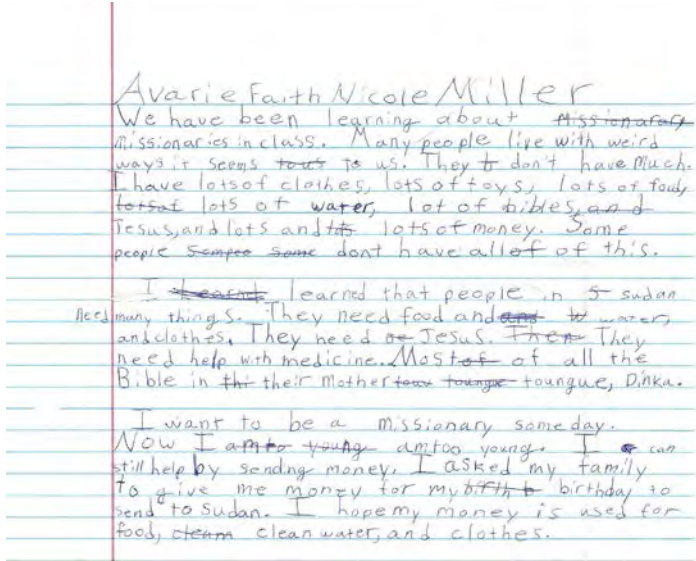 Avarie Faith Nicole Miller
We have been learning about Missionarary
missionaries in class. Many people live with weird
ways it seems tous to us. They t don't have much.
I have lots of clothes, lots of toys, lots of food,
lotsof lots of water, lot of bibles, and
Jesus, and lots and lots of money. Some
people Sempeo Some dont have allof of this.
I learned that people in S sudan
need many things. They need food and and w water,
and clothes. They need oe Jesus. Then They
need help with medicine. Most of of all the
Bible in thi their mother toungue toungue, Dinka.
I want to be a missionary someday.
Now I amto young am too young. I can
still help by sending money. I asked my family
to give me money for my birth b birthday to
send to Sudan. I hope my money is used for
food, cleam clean water, and clothes.